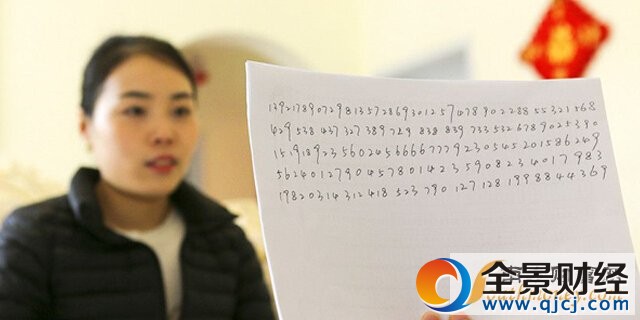 1392178907298135728693012574789022885532 1568
429 538 437 327 389 729 838 839 733 532 678 9025390
1519189235602456666777923054520158624 9
562401279045780142359082340179 83
198203143 12418 523 790 127 128 19988443 69
全景财经
www.qjcj.com